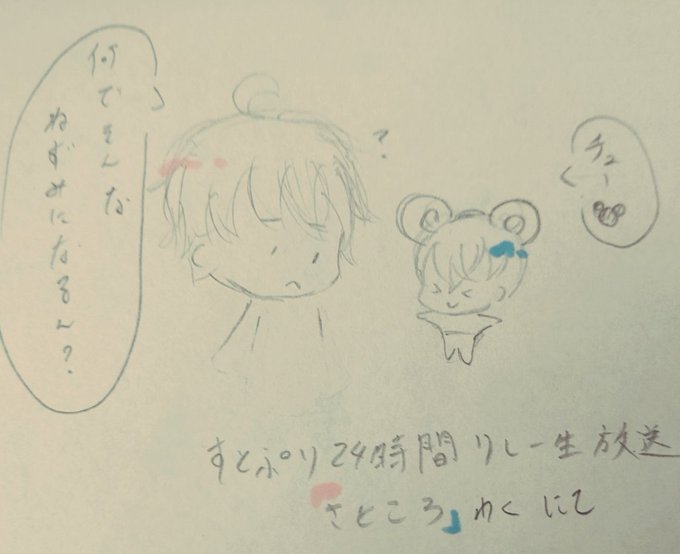 何でそんな
ねずみになるん？
?
チュー
すとぷり24時間リレー生放送
「さところ」わくにて